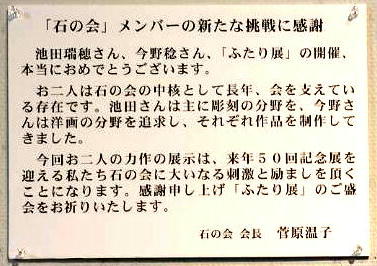 「石の会」メンバーの新たな挑戦に感謝
池田瑞穂さん、今野稔さん、「ふたり展」の開催、
本当におめでとうございます。
お二人は石の会の中核として長年、会を支えてい
る存在です。池田さんは主に彫刻の分野を、今野さ
んは洋画の分野を追求し、それぞれ作品を制作して
きました。
今回お二人の力作の展示は、来年５０回記念展を
迎える私たち石の会に大いなる刺激と励ましを頂く
ことになります。感謝申し上げ「ふたり展」のご盛
会をお祈りいたします。
石の会 会長 菅原温子